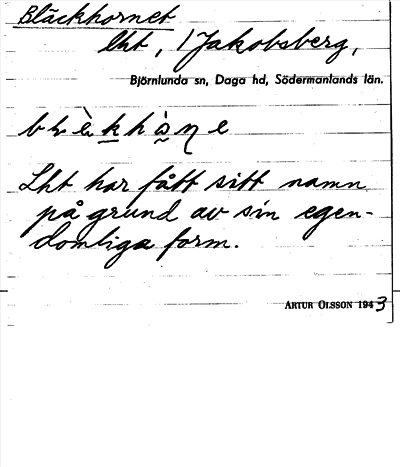 Bläckhornet
lht, 1 Jakobsberg,
Björnlunda sn, Daga hd, Södermanlands län.
Lht har fått sitt namn
på grund av sin egen-
domliga form.
ARTUR OLSSON 1943